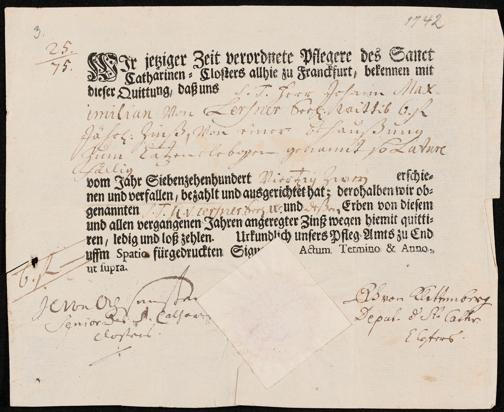 3.
1742
25/75.
Wir jetziger Zeit verordnete Pflegere des Sanct
Catharinen-Closters allhie zu Franckfurt, bekennen mit
dieser Quittung, daß uns S. T. Herr Johann Max-
imilian von Lersner Seel.
Zinß, von einer
zum Catzenelebogen genannt so Lature
fällig
vom Jahr Siebenzehenhundert Viertzig zwey erschie-
nen und verfallen, bezahlt und ausgerichtet hat; derohalben wir ob-
genannten S. T. H. v. Lersner und dessen Erben von diesem
und allen vergangenen Jahren angeregter Zinß wegen hiemit quitti-
ren, ledig und loß zehlen. Urkundlich unsers Pfleg-Amts zu End
uffm Spatio fürgedruckten Sign Actum, Termino & Anno,
ut supra.
6. fl.
Senior St. Cathar
Closters.
von
Deput. St. Cathr
Closters.